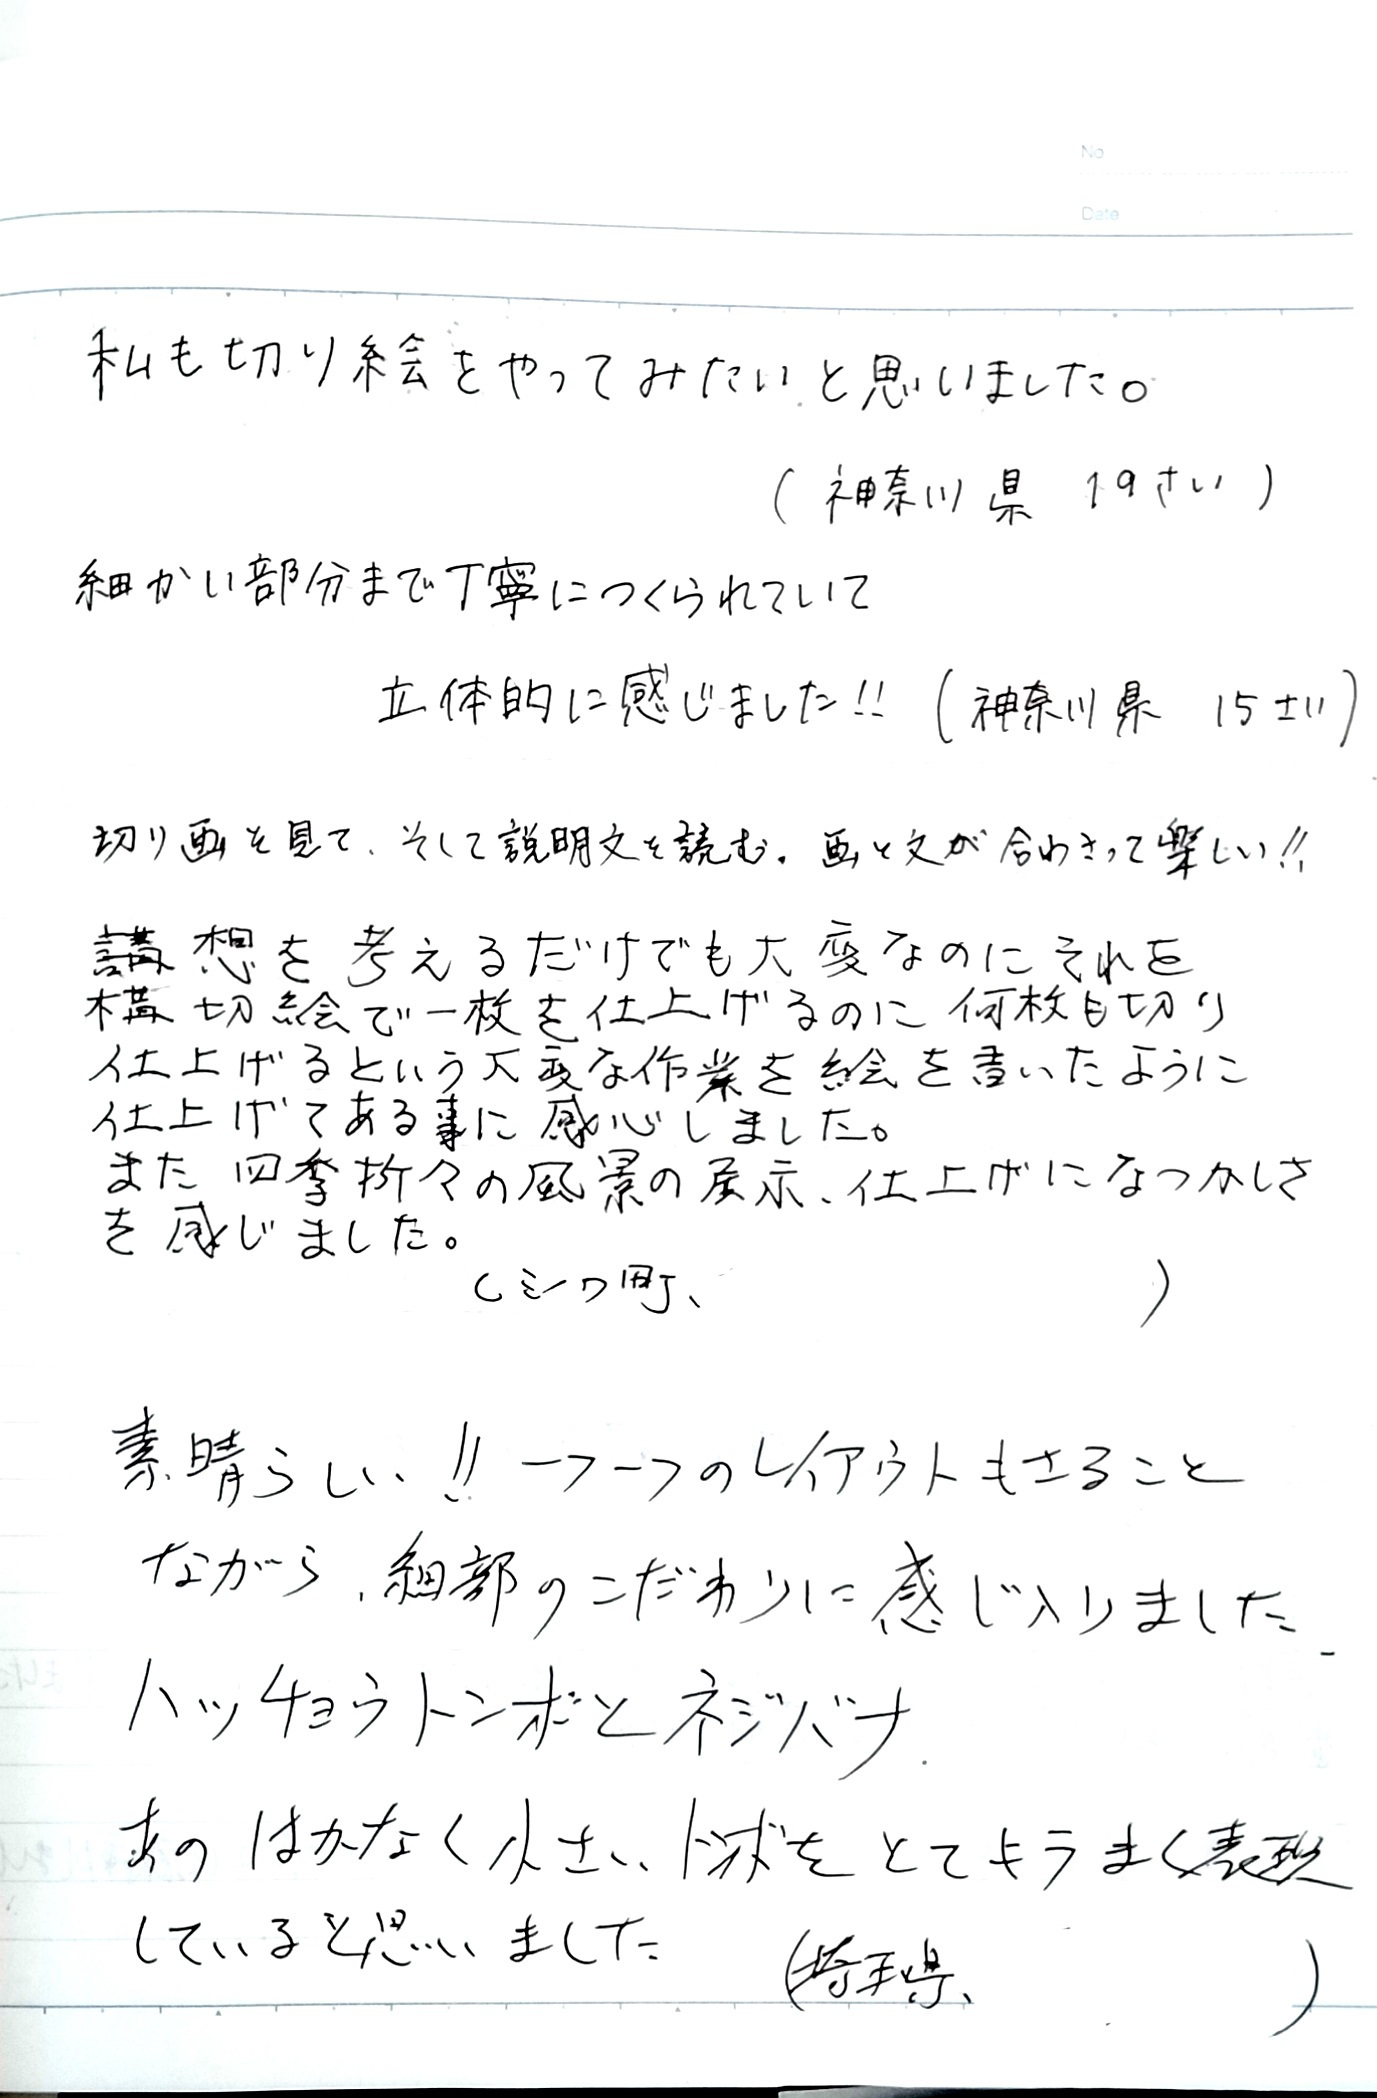 No
Date
私も切り絵をやってみたいと思いました。
(神奈川県 19さい)
細かい部分まで丁寧につくられていて
立体的に感じました!! (神奈川県 15さい)
切り画を見て、そして説明文を読む。画と文が合わさって楽しい!!
講想を考えるだけでも大変なのにそれを
構切絵で一枚を仕上げるのに何枚も切り
仕上げるという大変な作業を絵を書いたように
仕上げてある事に感心しました。
また四季折々の風景の展示、仕上げになつかしさ
を感じました。
(シワ町、 )
素晴らしい、!! 一つ一つのレイアウトもさること
ながら、細部のこだわりに感じ入りました
ハッチョウトンボとネジバナ
あのはかなく小さい、トンボをとてもうまく表現
していると思いました
(埼玉県、 )